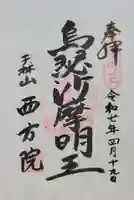 奉拝
令和七年四月十九日
烏瑟沙摩明王
西方院